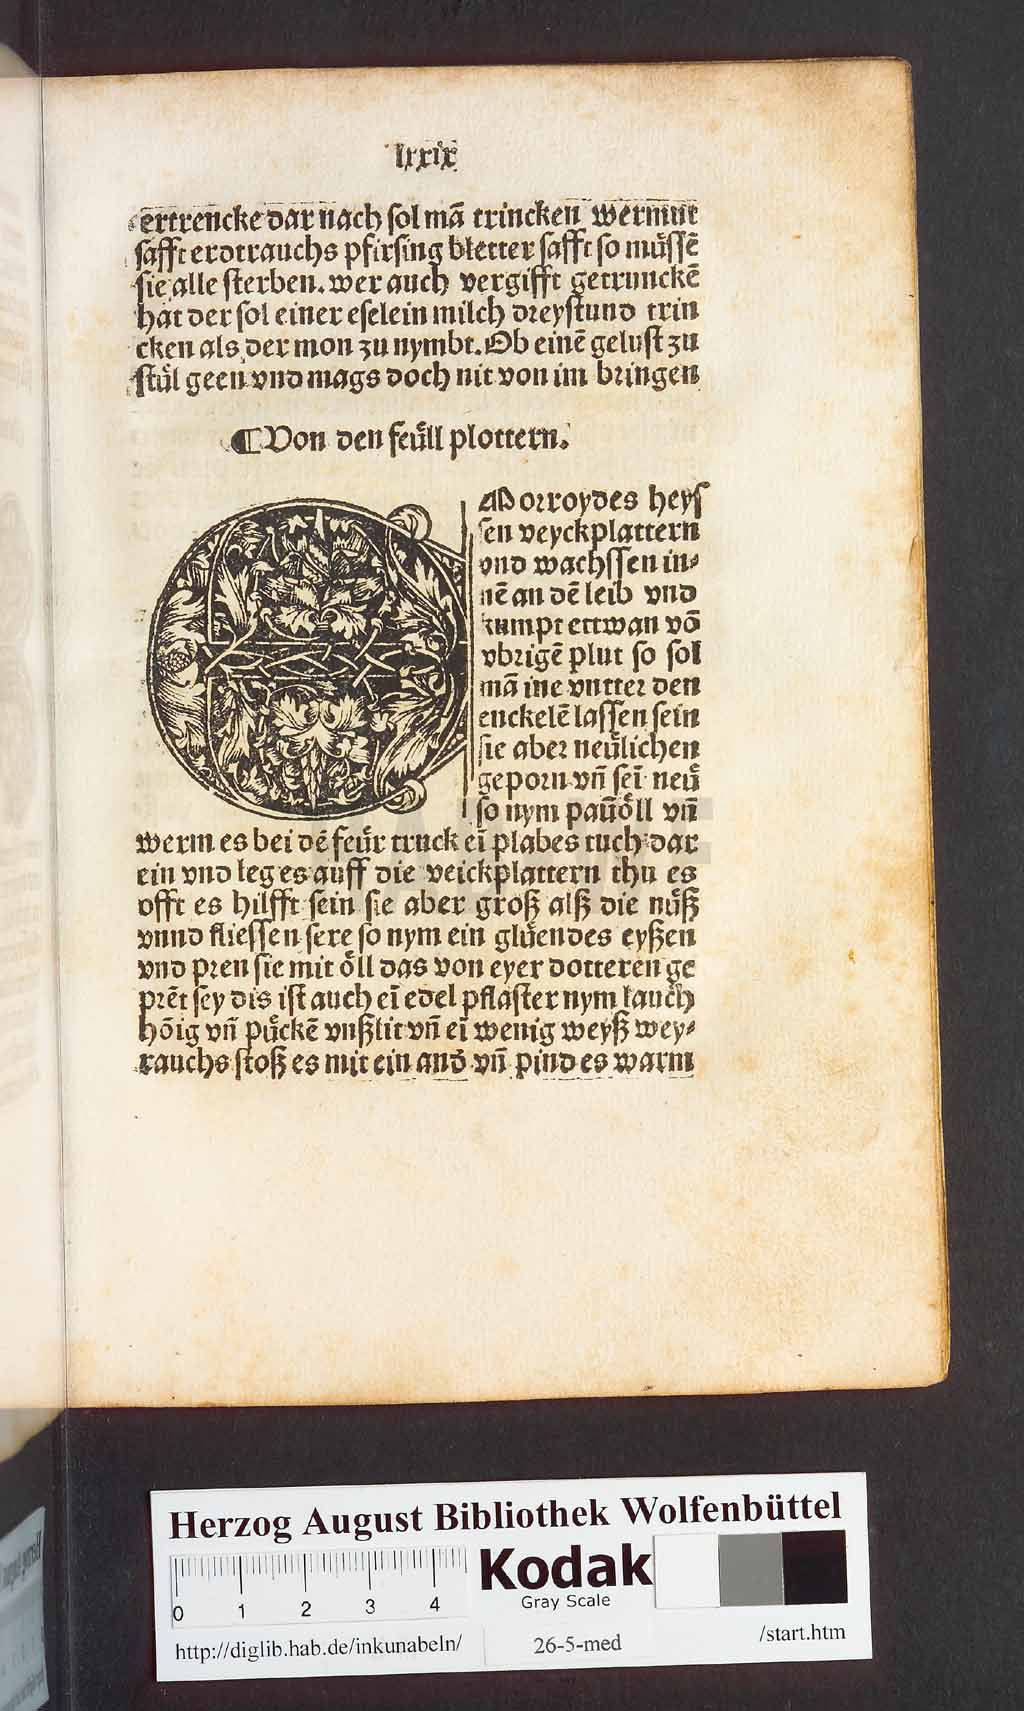 lxxix
ertrencke dar nach sol mā trincken wermut
safft erdtrauchs pfirsing bletter safft so müssē
sie alle sterben. wer auch vergifft getrunckē
hat der sol einer eselein milch dreystund trin
cken als der mon zu nymbt. Ob einē gelust zu
stůl geen vnd mags doch nit von im bringen
¶ Von den feüll plottern.
EMorroydes heys
sen veyckplattern
vnd wachssen in⸗
nē an dē leib vnd
kumpt ettwan vō
vbrigē plut so sol
mā ine vntter den
enckelē lassen sein
sie aber neülichen
geporn vñ sei neü
so nym pauöll vñ
werm es bei dē feür truck eī plabes tuch dar
ein vnd leg es auff die veickplattern thu es
offt es hilfft sein sie aber groß alß die nüß
vnnd fliessen sere so nym ein glüendes eyßen
vnd pren sie mit öll das von eyer dotteren ge
prēt sey dis ist auch eī edel pflaster nym lauch
hōig vñ pückē vnßlit vñ eī wenig weyß wey⸗
rauchs stoß es mit ein and vñ pind es warm
Herzog August Bibliothek Wolfenbüttel
Kodak
Gray Scale
0 1 2 3 4
http://diglib.hab.de/inkunabeln/ 26-5-med /start.htm